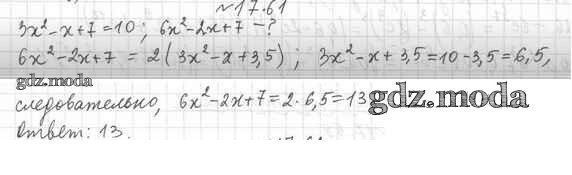 №17.61
3x²-x+7=10; 6x²-2x+7-?
6x²-2x+7=2(3x²-x+3,5); 3x²-x+3,5=10-3,5=6,5,
gdz.moda
следовательно, 6x²-2x+7=2·6,5=13 gdz.moda
Ответ: 13.